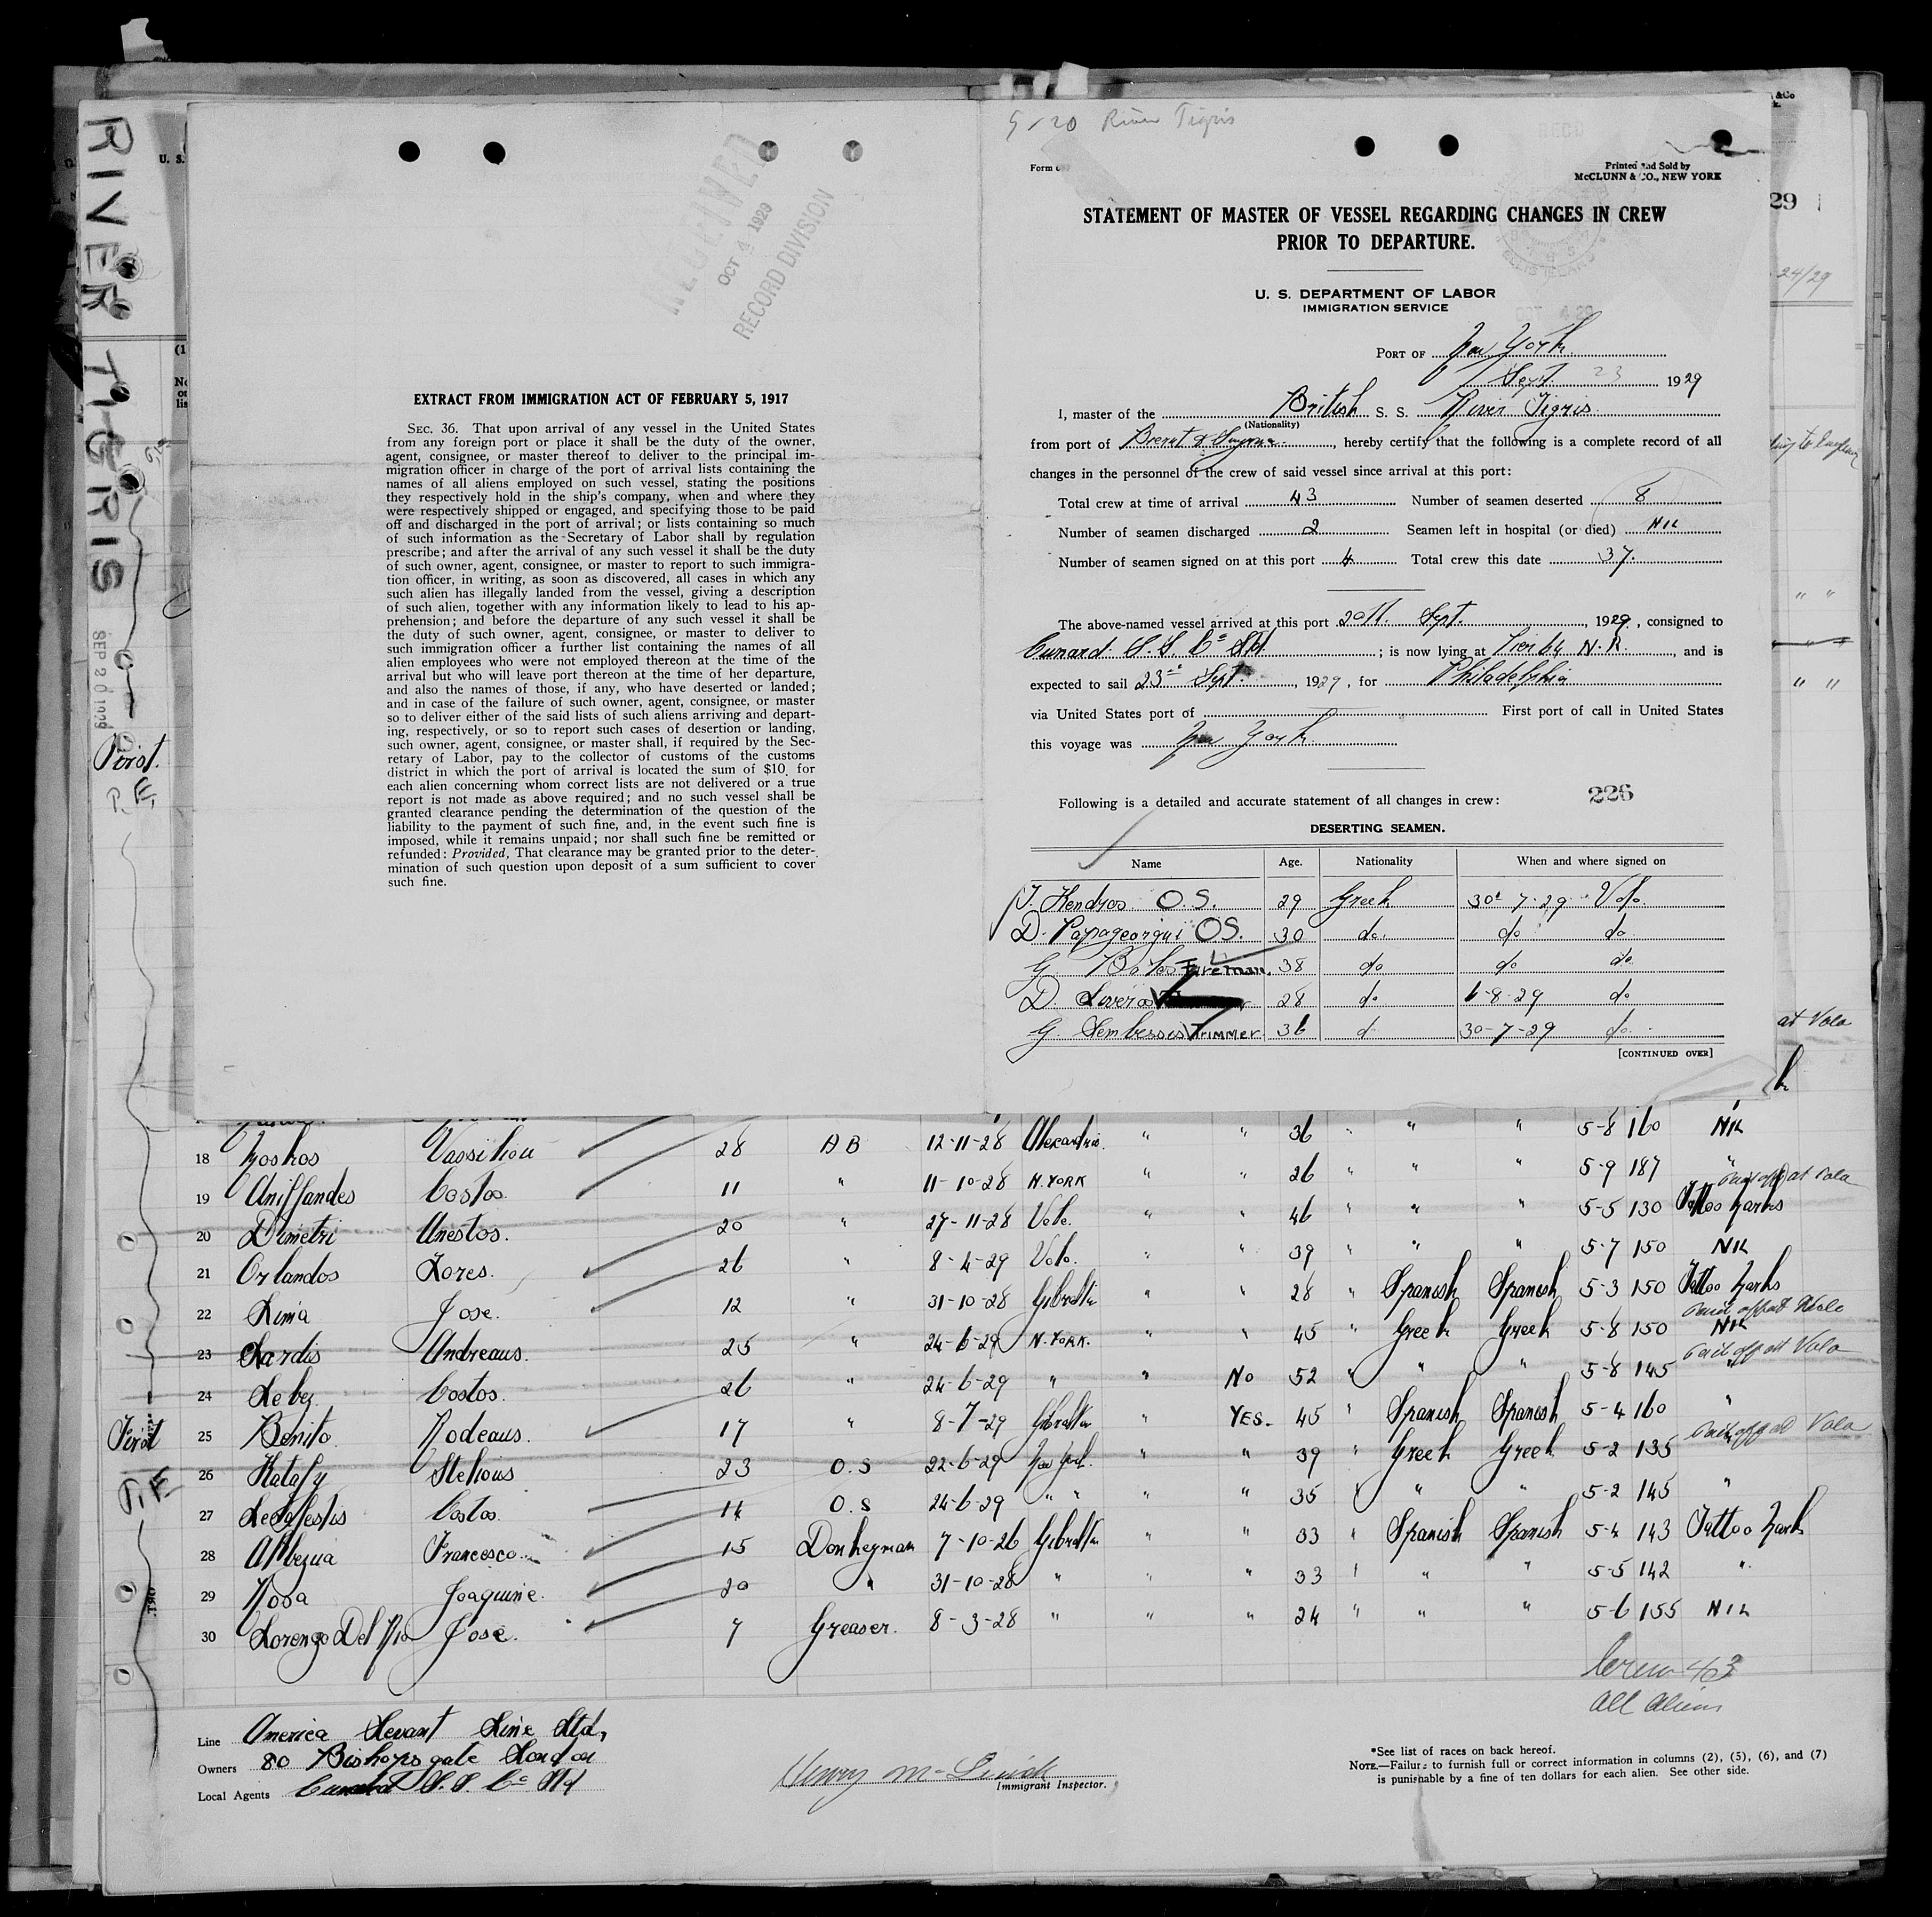 RIVER TIGRIS
SEP 20 1929
First.
First
U. S.
RECEIVED
OCT 4 1929
RECORD DIVISION
EXTRACT FROM IMMIGRATION ACT OF FEBRUARY 5, 1917
SEC. 36. That upon arrival of any vessel in the United States
from any foreign port or place it shall be the duty of the owner,
agent, consignee, or master thereof to deliver to the principal im-
migration officer in charge of the port of arrival lists containing the
names of all aliens employed on such vessel, stating the positions
they respectively hold in the ship's company, when and where they
were respectively shipped or engaged, and specifying those to be paid
off and discharged in the port of arrival; or lists containing so much
of such information as the Secretary of Labor shall by regulation
prescribe; and after the arrival of any such vessel it shall be the duty
of such owner, agent, consignee, or master to report to such immigra-
tion officer, in writing, as soon as discovered, all cases in which any
such alien has illegally landed from the vessel, giving a description
of such alien, together with any information likely to lead to his ap-
prehension; and before the departure of any such vessel it shall be
the duty of such owner, agent, consignee, or master to deliver to
such immigration officer a further list containing the names of all
alien employees who were not employed thereon at the time of the
arrival but who will leave port thereon at the time of her departure,
and also the names of those, if any, who have deserted or landed;
and in case of the failure of such owner, agent, consignee, or master
so to deliver either of the said lists of such aliens arriving and depart-
ing, respectively, or so to report such cases of desertion or landing,
such owner, agent, consignee, or master shall, if required by the Sec-
retary of Labor, pay to the collector of customs of the customs
district in which the port of arrival is located the sum of $10 for
each alien concerning whom correct lists are not delivered or a true
report is not made as above required; and no such vessel shall be
granted clearance pending the determination of the question of the
liability to the payment of such fine, and, in the event such fine is
imposed, while it remains unpaid; nor shall such fine be remitted or
refunded: Provided, That clearance may be granted prior to the deter-
mination of such question upon deposit of a sum sufficient to cover
such fine.
9/20 River Tigris
Form
Printed and Sold by
McCLUNN & CO., NEW YORK
STATEMENT OF MASTER OF VESSEL REGARDING CHANGES IN CREW
PRIOR TO DEPARTURE.
U. S. DEPARTMENT OF LABOR
IMMIGRATION SERVICE
OCT 4 29
PORT OF New York.
Sept. 23 1929
I, master of the British S. S. River Tigris
(Nationality)
from port of Beirut & Smyrna, hereby certify that the following is a complete record of all
changes in the personnel of the crew of said vessel since arrival at this port:
Total crew at time of arrival 43 Number of seamen deserted 8
Number of seamen discharged 2 Seamen left in hospital (or died) NIL
Number of seamen signed on at this port 4 Total crew this date 37.
The above-named vessel arrived at this port 20th. Sept. , 1929, consigned to
Cunard. S. S. Co Ltd ; is now lying at Pier 64 N. R. , and is
expected to sail 23rd Sept. , 1929, for Philadelphia
via United States port of First port of call in United States
this voyage was New York.
Following is a detailed and accurate statement of all changes in crew: 226
DESERTING SEAMEN.
Name Age. Nationality When and where signed on
J. Kendros. O.S. 29 Greek 30-7-29 Volo.
D. Papageorgui OS. 30 do. do do
G Fireman. 38 do do do
D. 28 do 6-8-29 do
G. Sembesois Trimmer. 36 d 30-7-29 do.
[CONTINUED OVER]
&Co
29
24/29
at Volo
18 Vassiliou 28 AB 12-11-28 Alexandria. " " 36 " " " 5-8 160 NIL
19 Costos. 11 " 11-10-28 N. YORK " " 26 " " " 5-9 187 "
paid off at Volo
20 Dimetri Anestos. 20 " 27-11-28 Volo. " " 46 " " " 5-5 130 Tattoo Marks
21 Orlandos Lores. 26 " 8-4-29 Volo. " " 39 " " " 5-7 150 NIL
22 Lima Jose. 12 " 31-10-28 Gibraltar " 28 " Spanish Spanish 5-3 150 Tattoo Marks
23 Lardis Andreaus. 25 " 24-6-29 N. YORK. " " 45 " Greek Greek 5-8 150 NIL
paid off at Volo
24 Costos. 26 " 24-6-29 " " NO 52 " " " 5-8 145 "
25 Benito. Rodeaus. 17 " 8-7-29 Gibraltar " YES- 45 " Spanish Spanish 5-4 160 "
paid off at Volo
26 Katafy Stelious 23 O.S 22-6-29 New York. " " 39 " Greek Greek 5-2 135
27 Costos. 14 O.S 24-6-29 " " " " 35 " " " 5-2 145 "
28 Francesco 15 Donkeyman 7-10-26 Gibraltar " " 33 " Spanish Spanish 5-4 143 Tattoo Mark
29 Rosa Joaquine. 20 " 31-10-28 " " " 33 " " " 5-5 142 "
30 Lorenzo Del Rio Jose. 7 Greaser. 8-3-28 " " " 24 " " " 5-6 155 NIL
Crew 43
All Aliens
Line America Levant Line Ltd,
Owners 80 Bishopsgate London
Local Agents Cunard S. S. Co Ltd
Immigrant Inspector.
*See list of races on back hereof.
NOTE.—Failure to furnish full or correct information in columns (2), (5), (6), and (7)
is punishable by a fine of ten dollars for each alien. See other side.